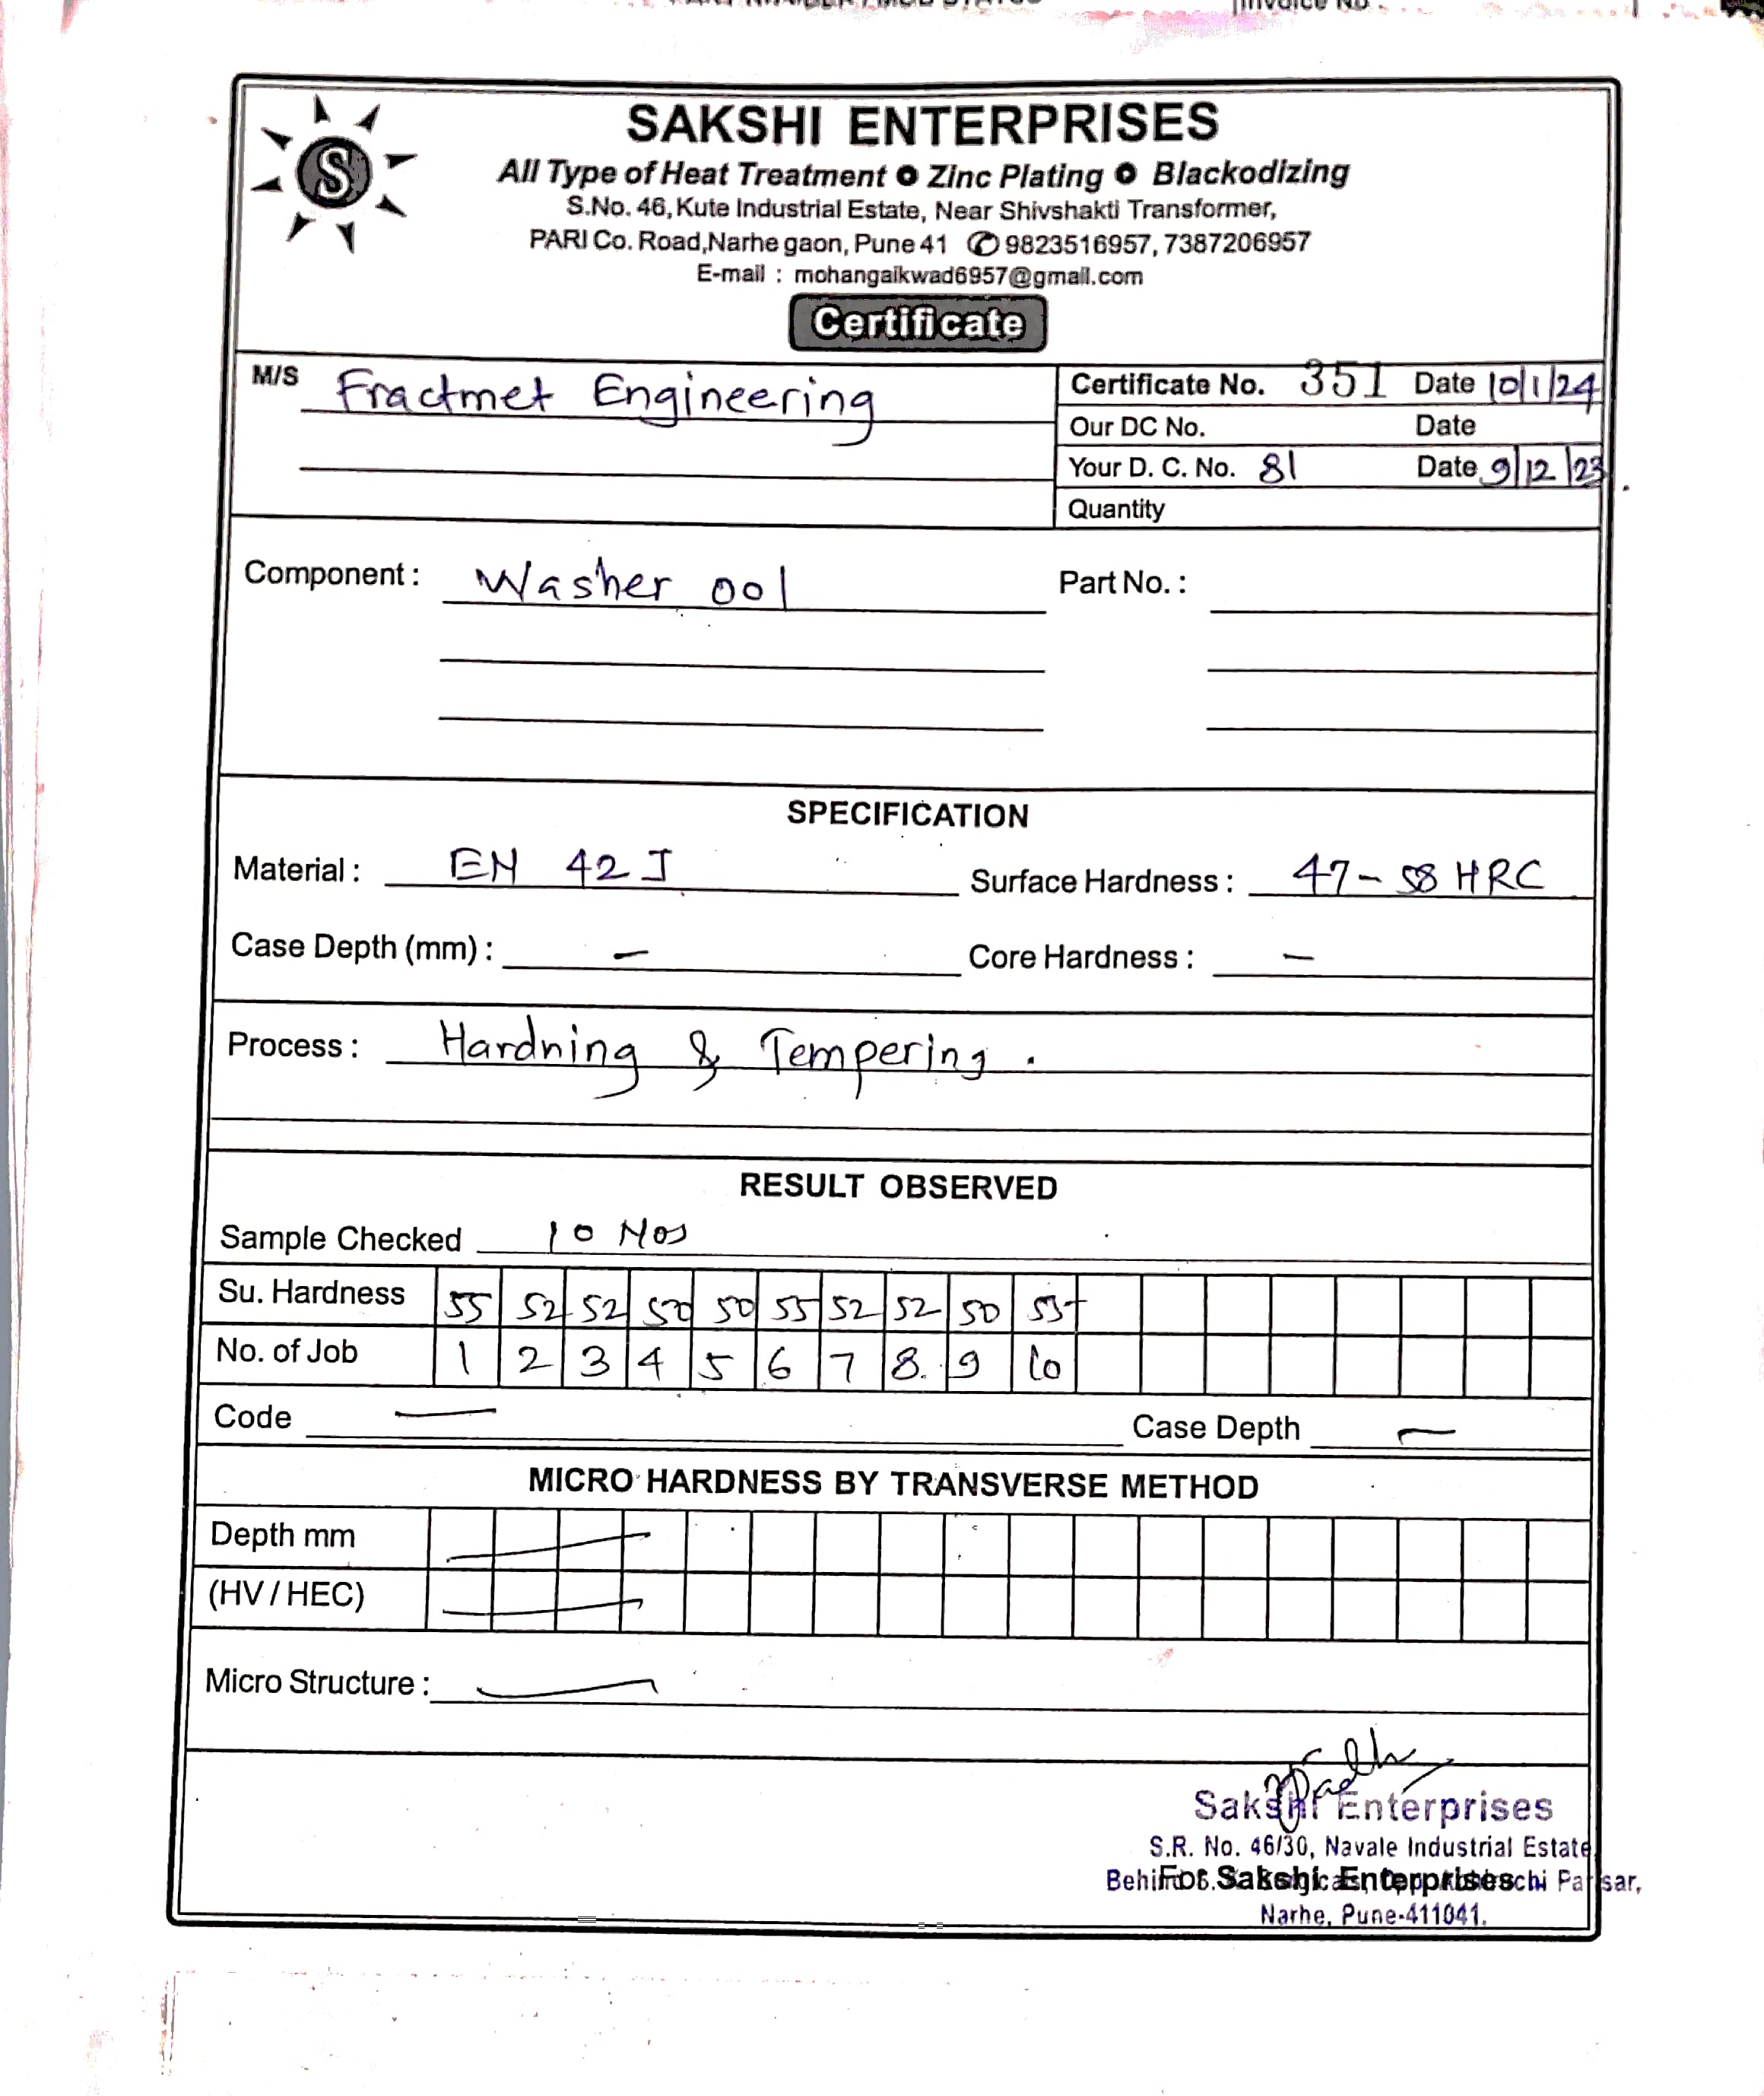 SAKSHI ENTERPRISES
All Type of Heat Treatment Zinc Plating Blackodizing
S.No. 46, Kute Industrial Estate, Near Shivshakti Transformer,
PARI Co. Road, Narhe gaon, Pune 41 ✆ 9823516957, 7387206957
E-mail : mohangaikwad6957@gmail.com
S
Certificate
M/S Fractmet Engineering
Certificate No. 351 Date 10/1/24
Our DC No. Date
Your D. C. No. 81 Date 9/12/23
Quantity
Component : Washer 001 Part No. :
SPECIFICATION
Material : EN 42 J Surface Hardness : 47 - 58 HRC
Case Depth (mm) : - Core Hardness : -
Process : Hardning & Tempering .
RESULT OBSERVED
Sample Checked 10 Nos
Su. Hardness 55 52 52 50 50 55 52 52 50
No. of Job 1 2 3 4 5 6 7 8. 9 10
Code - Case Depth -
MICRO HARDNESS BY TRANSVERSE METHOD
Depth mm
(HV / HEC)
Micro Structure :
Sakshi Enterprises
S.R. No. 46/30, Navale Industrial Estate
For Sakshi Enterprises
Narhe, Pune-411041.